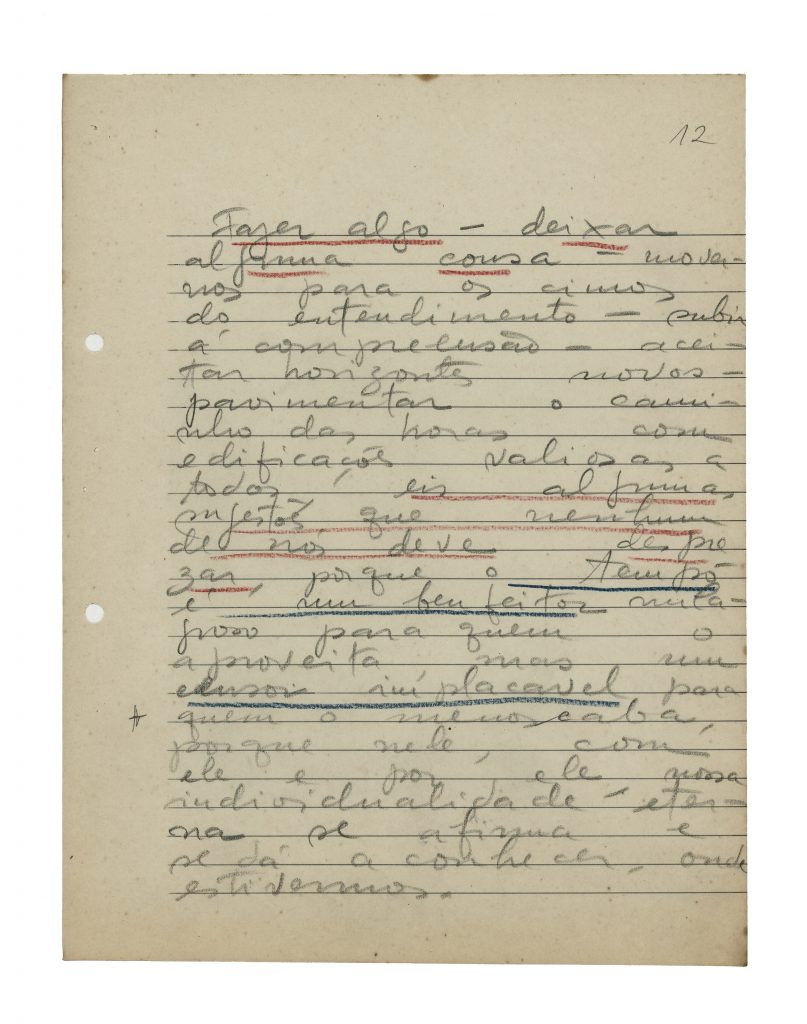 12
Fazer algo — deixar
alguma cousa — mover-
nos para os cimos
do entendimento — subir
á compreensão — acei-
tar horizontes novos —
pavimentar o cami-
nho das horas com
edificações valiosas a
todos, eis algumas
sugestões que nenhum
de nós deve despre
zar, porque o tempo
é um benfeitor mila-
groso para quem o
aproveita mas um
censor implacavel para
quem o menoscaba,
porque nele, com
ele e por ele nossa
individualidade eter-
na se afirma e
se dá a conhecer, onde
estivermos.